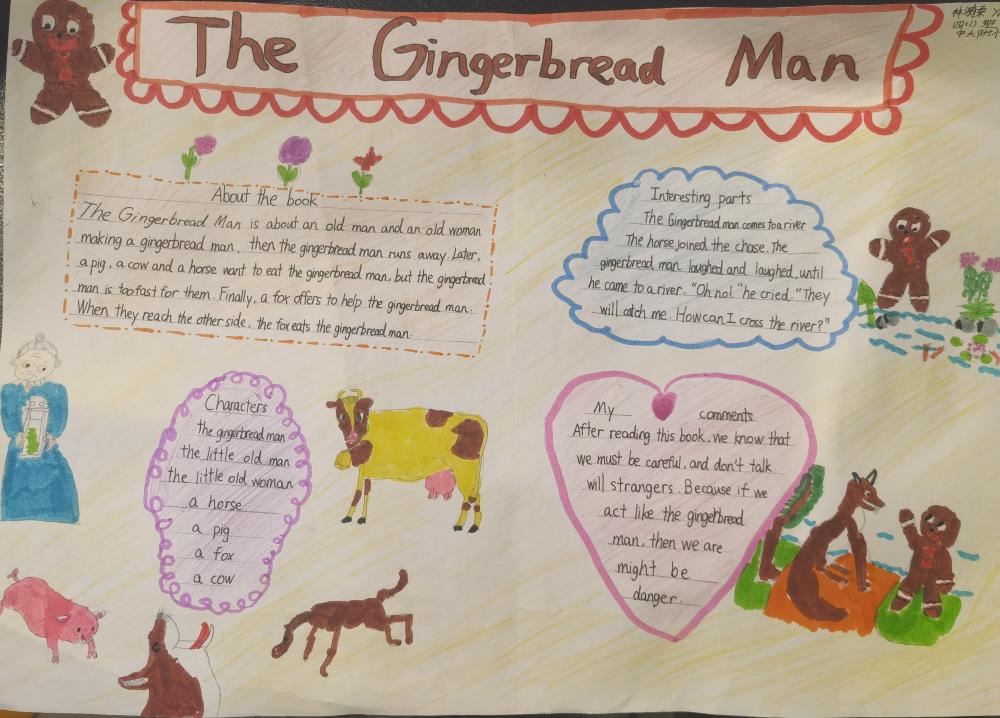 The Gingerbread Man
四(1)班
About the book
The Gingerbread Man is about an old man and an old woman
making a gingerbread man, then the gingerbread man runs away. Later,
a pig, a cow and a horse want to eat the gingerbread man, but the gingerbred
man is too fast for them. Finally, a fox offers to help the gingerbred man.
When they reach the other side, the fox eats the gingerbred man.
Interesting parts
The Gingerbread man comes to a river
The horse joined the chase. The
gingerbread man laughed and laughed, until
he came to a river. "Oh no!" he cried. "They
will catch me. How can I cross the river?"
Characters
the gingerbread man
the little old man
the little old woman
a horse
a pig
a fox
a cow
My comments
After reading this book, we know that
we must be careful, and don't talk
will strangers. Because if we
act like the gingerbread
man, then we are
might be
danger.